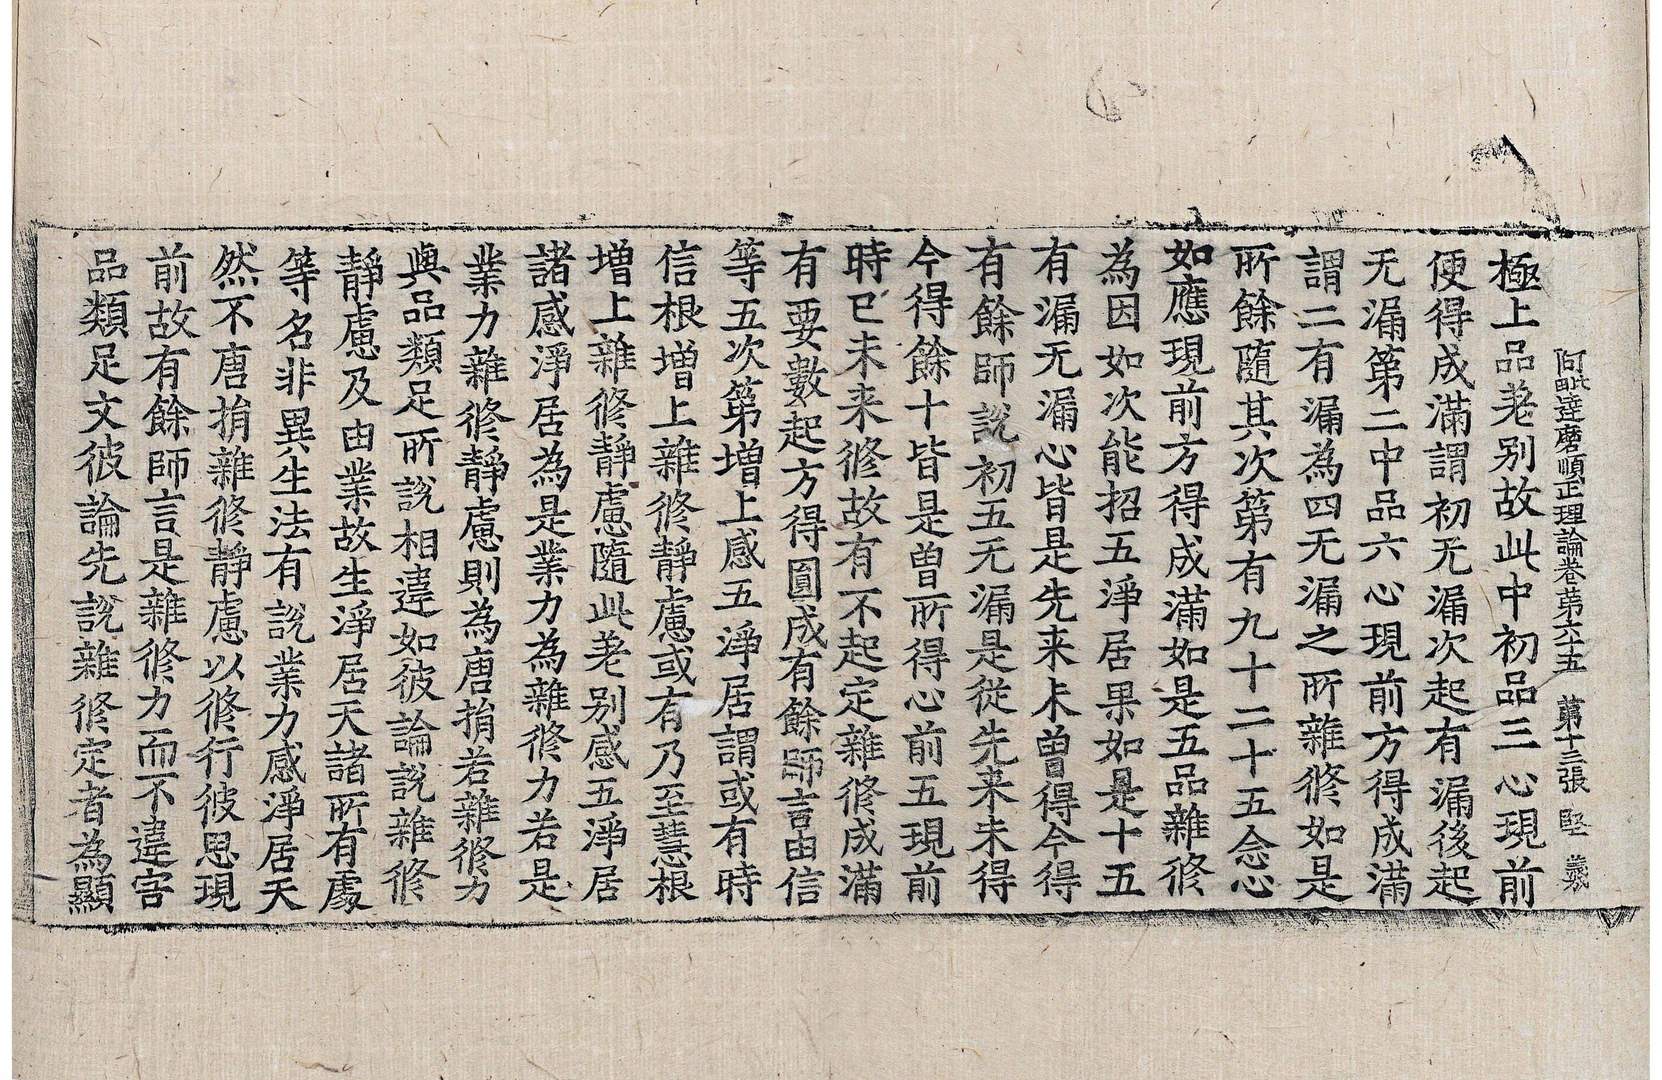 阿毗達磨順正理論卷第六十五 第十三張 堅 義
極上品差别故此中初品三心現前
便得成滿謂初无漏次起有漏後起
无漏第二中品六心現前方得成滿
謂二有漏為四无漏之所雜修如是
所餘隨其次第有九十二十五念心
如應現前方得成滿如是五品雜修
為因如次能招五淨居果如是十五
有漏无漏心皆是先来未曾得今得
有餘師說初五无漏是從先来未得
今得餘十皆是曾所得心前五現前
時已未来修故有不起定雜修成滿
有要數起方得圓成有餘師言由信
等五次第增上感五淨居謂或有時
信根增上雜修靜慮或有乃至慧根
增上雜修靜慮隨此差别感五淨居
諸感淨居為是業力為雜修力若是
業力雜修靜慮則為唐捐若雜修力
與品類足所說相違如彼論說雜修
靜慮及由業故生淨居天諸所有處
等名非異生法有說業力感淨居天
然不唐捐雜修靜慮以修行彼思現
前故有餘師言是雜修力而不違害
品類足文彼論先說雜修定者為顯